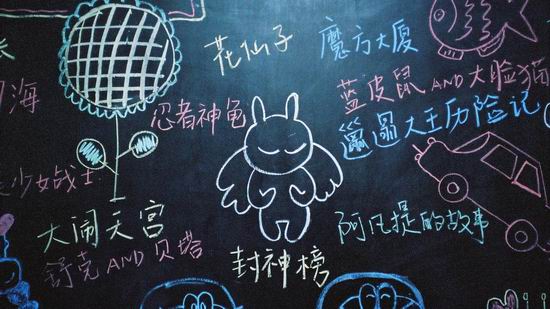 花仙子
魔方大厦
海
蓝皮鼠AND大脸猫
忍者神龟
邋遢大王历险记
少女战士
大闹天宫
阿凡提的故事
舒克AND贝塔
封神榜